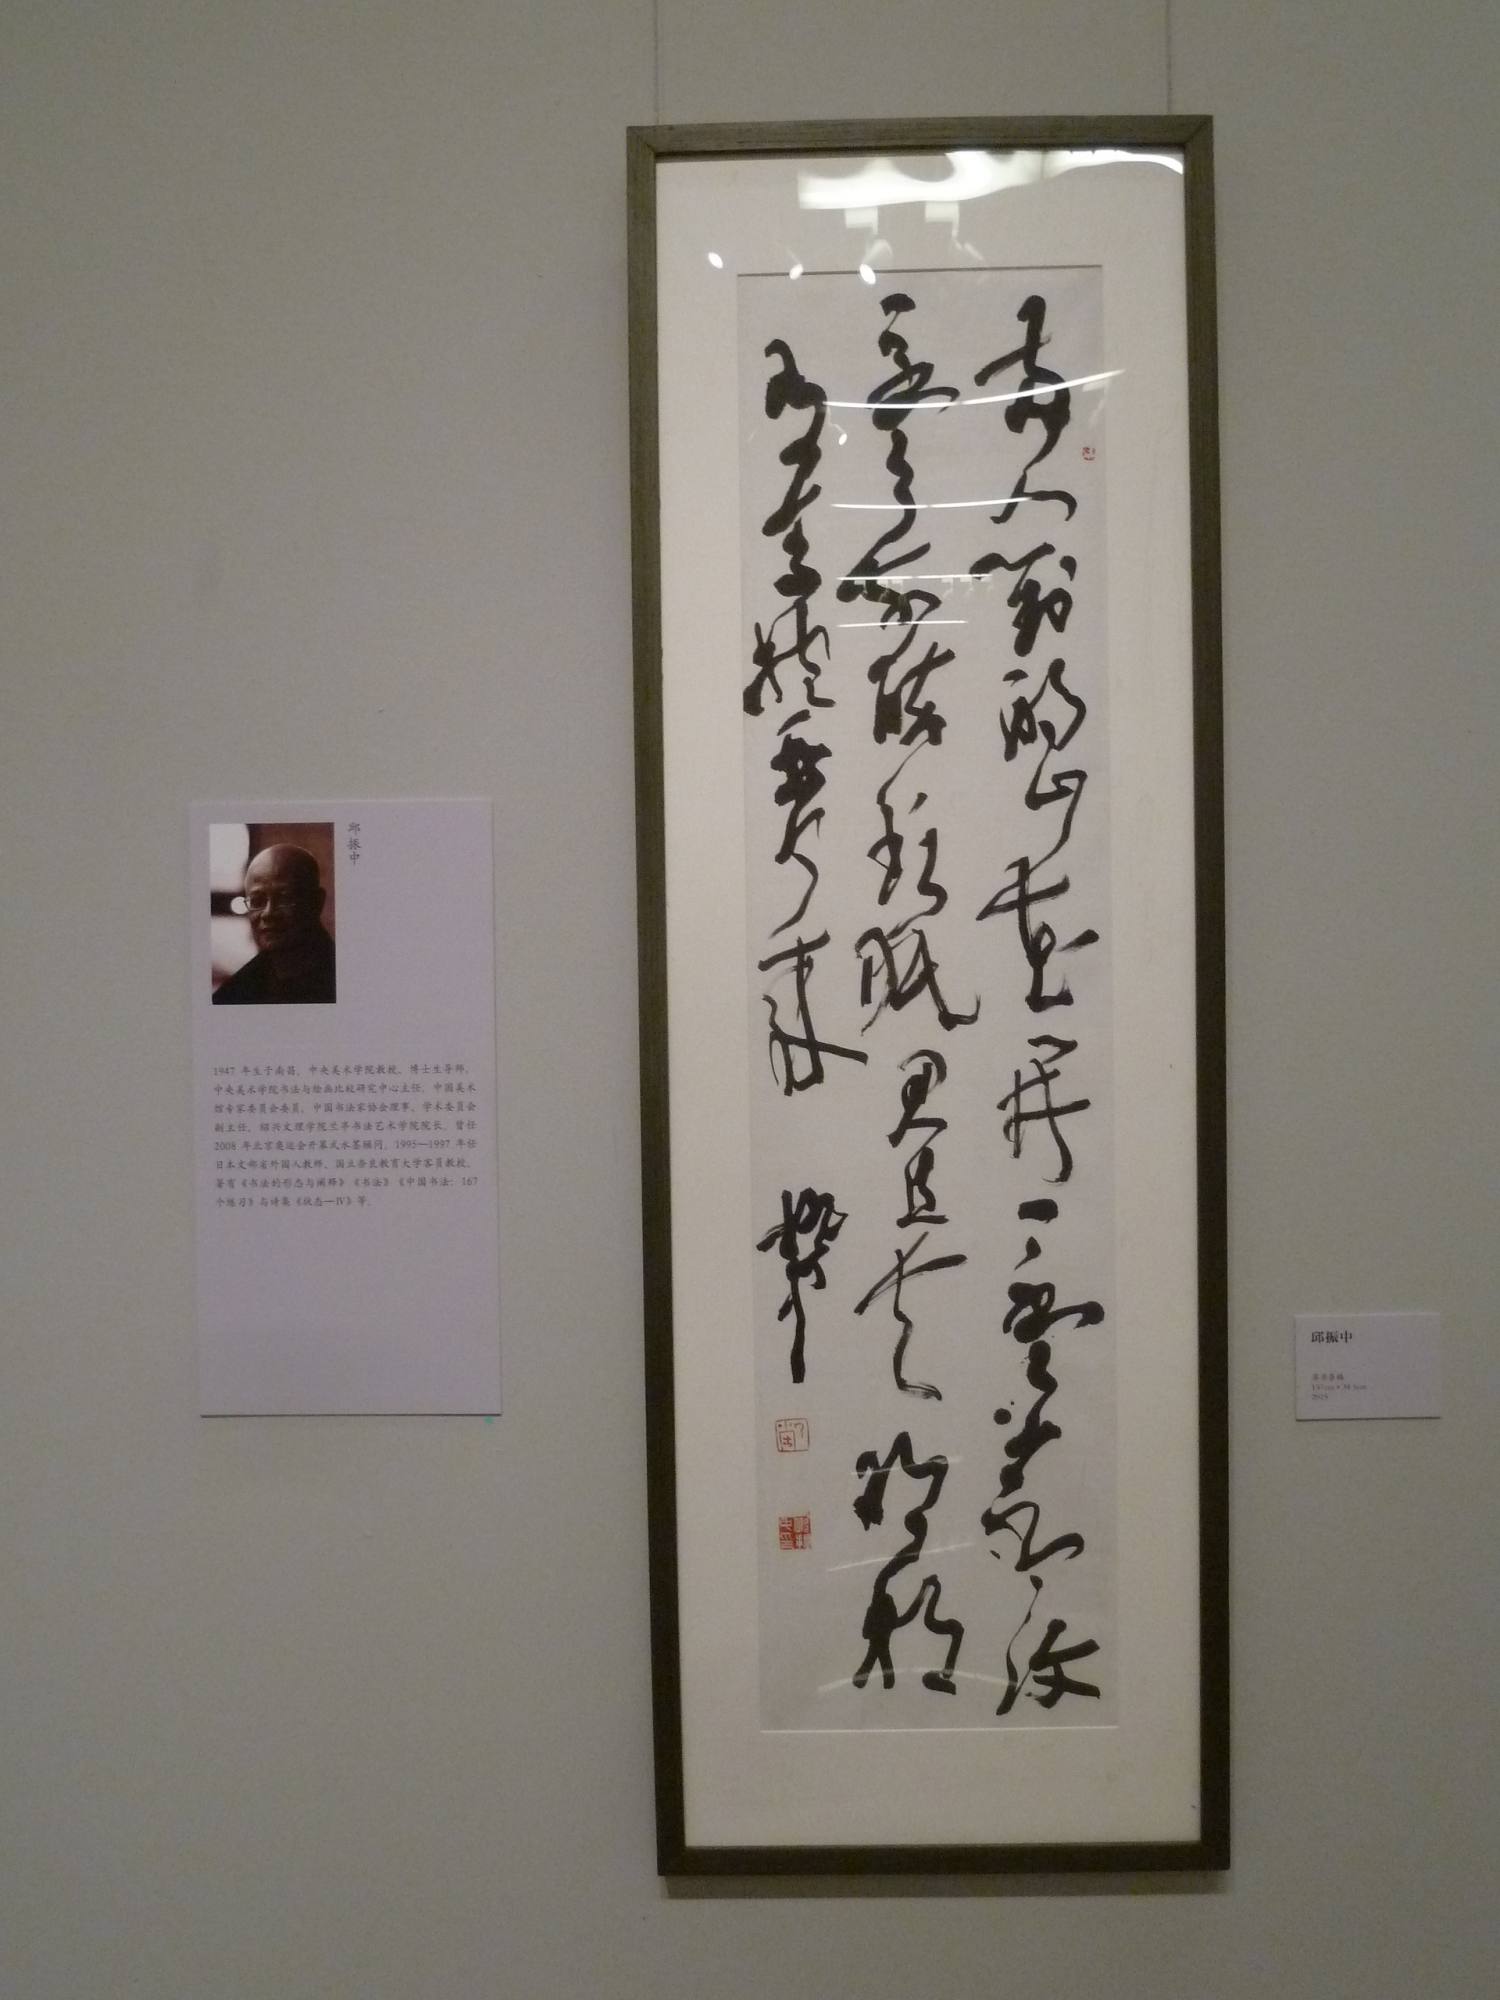 邱振中
1947 年生于南昌。中央美术学院教授、博士生导师,
中央美术学院书法与绘画比较研究中心主任,中国美术
馆专家委员会委员,中国书法家协会理事、学术委员会
副主任,绍兴文理学院兰亭书法艺术学院院长。曾任
2008 年北京奥运会开幕式水墨顾问。1995—1997 年任
日本文部省外国人教师、国立奈良教育大学客员教授。
著有《书法的形态与阐释》《书法》《中国书法:167
个练习》与诗集《状态—Ⅳ》等。
兩人對酌山花開一盃
一盃 我醉欲眠 且去明朝
有意抱琴来
邱振中